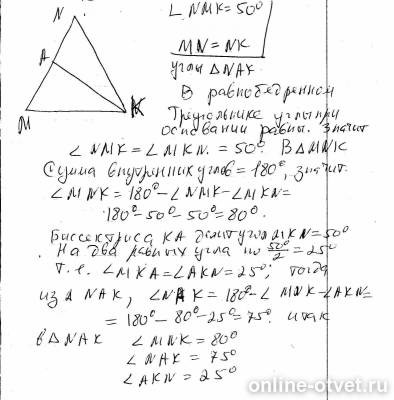 N
A
M
K
∠ NMK = 50°
MN = NK
углы △NAK
В равнобедренном
Треугольнике углы при
основании равны. Значит
∠ NMK = ∠ MKN = 50°. В △MNK
Сумма внутренних углов = 180°, значит
∠ MNK = 180° - ∠ NMK - ∠ MKN =
180° - 50° - 50° = 80°.
Биссектриса KA делит угол MKN = 50°
На два равных угла по 50°/2 = 25°
т.е. ∠ MKA = ∠ AKN = 25°; тогда
из △ NAK, ∠ NAK = 180° - ∠ MNK - ∠AKN =
= 180° - 80° - 25° = 75° итак
в △ NAK ∠ MNK = 80°
∠ NAK = 75°
∠ AKN = 25°
online-otvet.ru